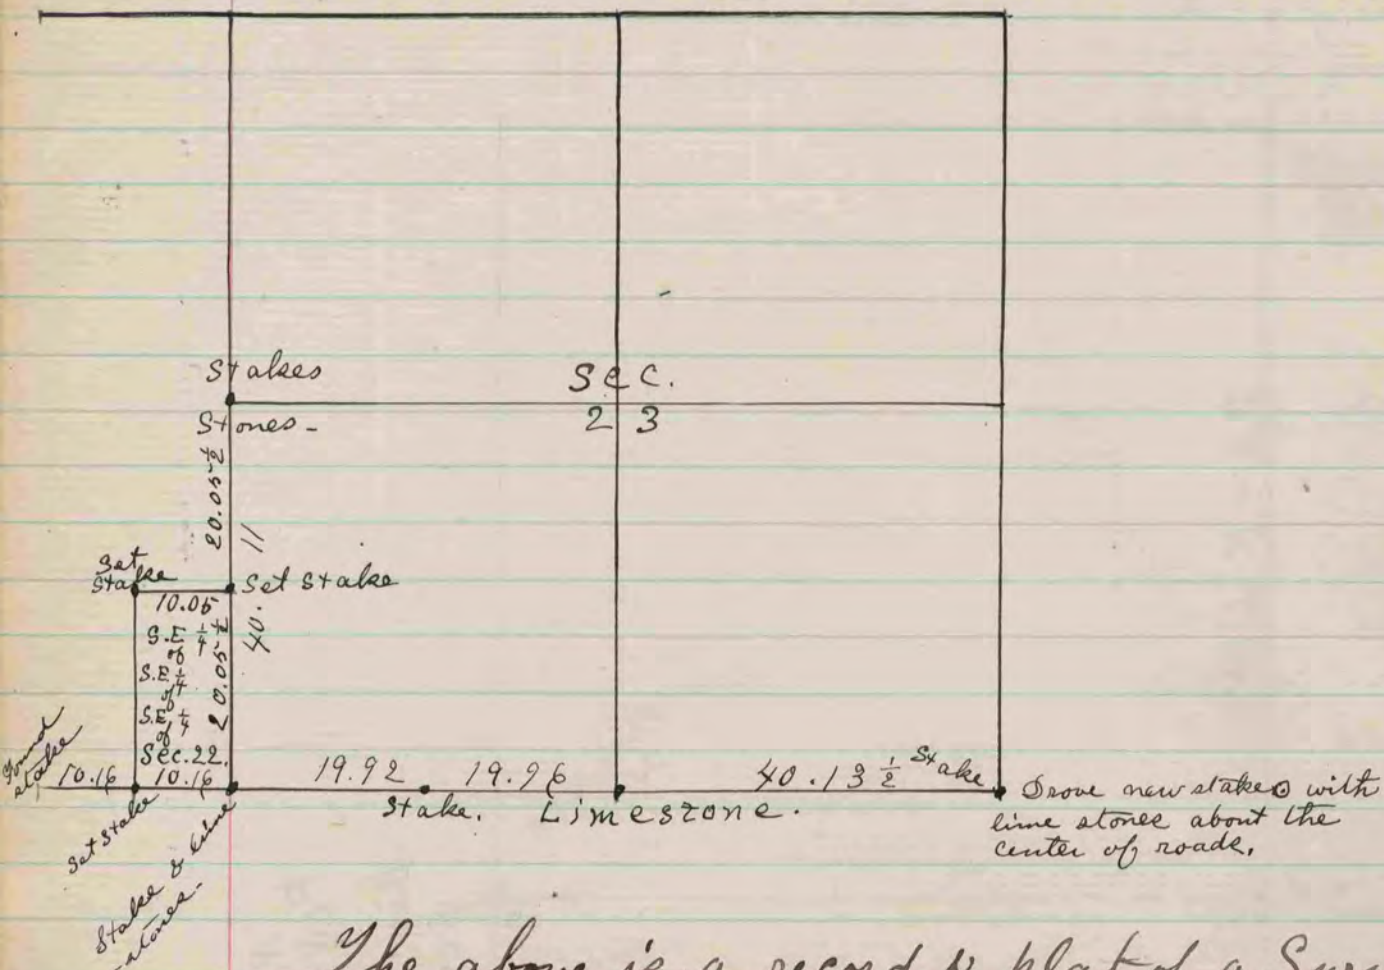 Stakes
Stones -
SEC.
2 3
20.05 1/2
40.11
Set
Stake
Set Stake
10.05
S.E 1/4
of
S.E 1/4
of
S.E 1/4
of
Sec. 22.
20.05 1/2
Found
stake
10.16
10.16
19.92
19.96
40.13 1/2
Stake
Set Stake
Stake & Lime
stones -
Stake.
Limestone.
Drove new stakes with
lime stones about the
center of roads.
The above is a record & plat of a Sur